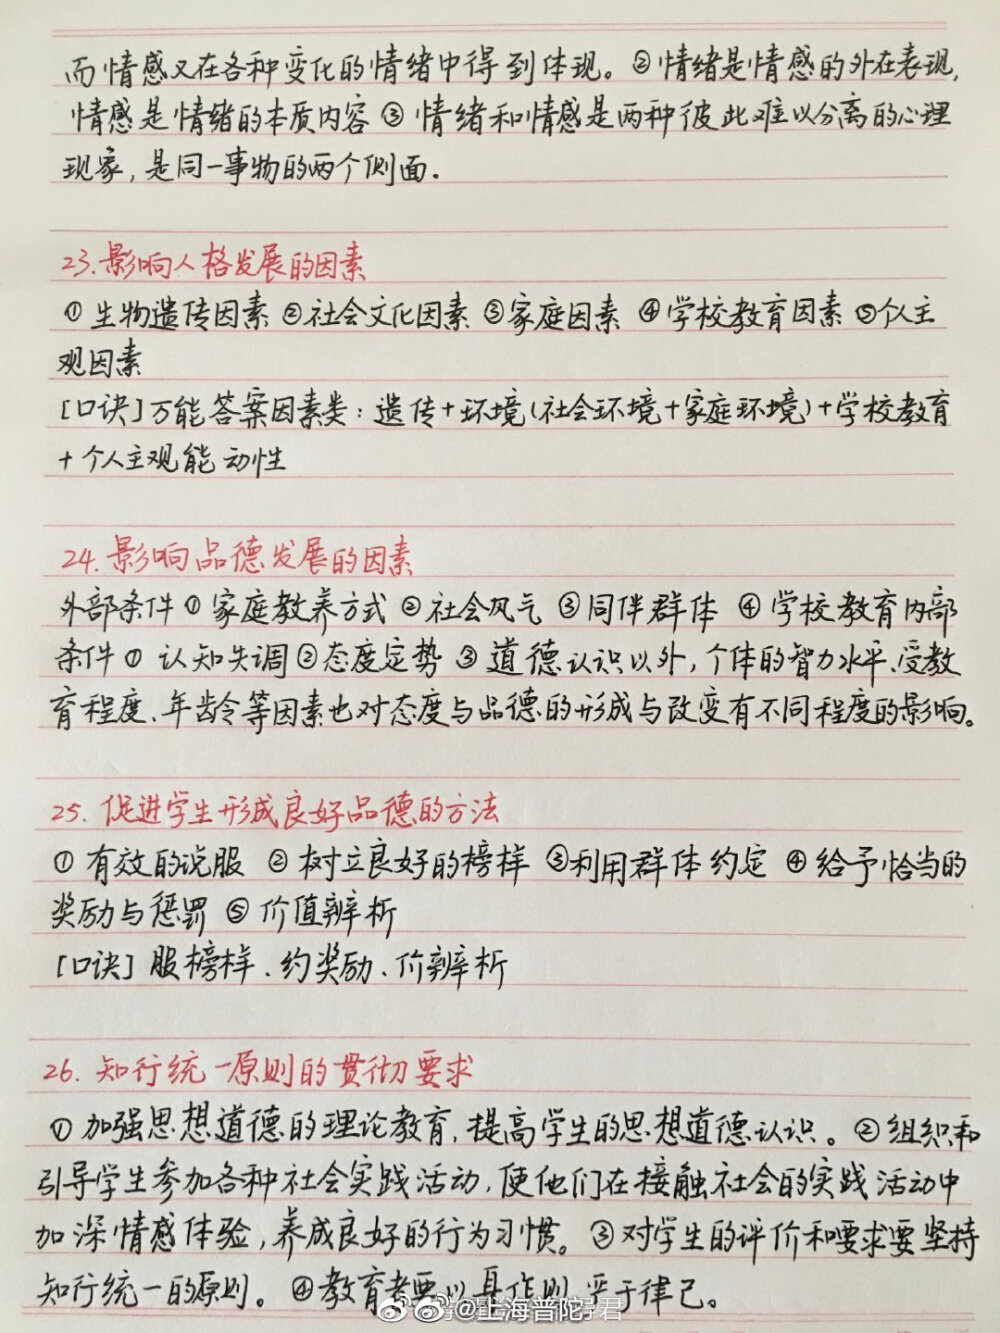 而情感又在各种变化的情绪中得到体现。②情绪是情感的外在表现,
情感是情绪的本质内容③情绪和情感是两种彼此难以分离的心理
现象,是同一事物的两个侧面.
23.影响人格发展的因素
①生物遗传因素②社会文化因素③家庭因素 ④学校教育因素⑤个人主
观因素
[口诀]万能答案因素类:遗传+环境(社会环境+家庭环境)+学校教育
+个人主观能动性
24.影响品德发展的因素
外部条件①家庭教养方式 ②社会风气 ③同伴群体 ④学校教育内部
条件① 认知失调②态度定势 ③道德认识以外,个体的智力水平、受教
育程度、年龄等因素也对态度与品德的形成与改变有不同程度的影响。
25.促进学生形成良好品德的方法
①有效的说服 ②树立良好的榜样 ③利用群体约定 ④给予恰当的
奖励与惩罚 ⑤价值辨析
[口诀]服榜样、约奖励、价辨析
26.知行统一原则的贯彻要求
①加强思想道德的理论教育,提高学生的思想道德认识。②组织和
引导学生参加各种社会实践活动,使他们在接触社会的实践活动中
加深情感体验,养成良好的行为习惯。③对学生的评价和要求要坚持
知行统一的原则。④教育者要以身作则严于律己。
@上海普陀君